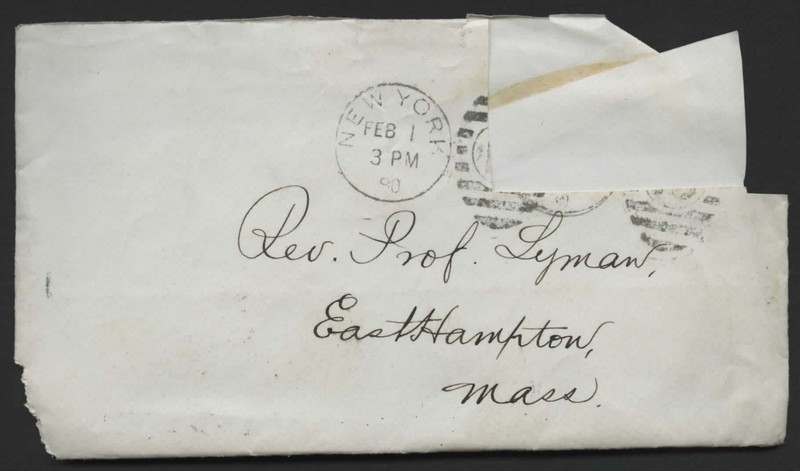 NEW YORK
FEB 1
3 PM
90
Rev. Prof. Lyman,
EastHampton,
Mass.